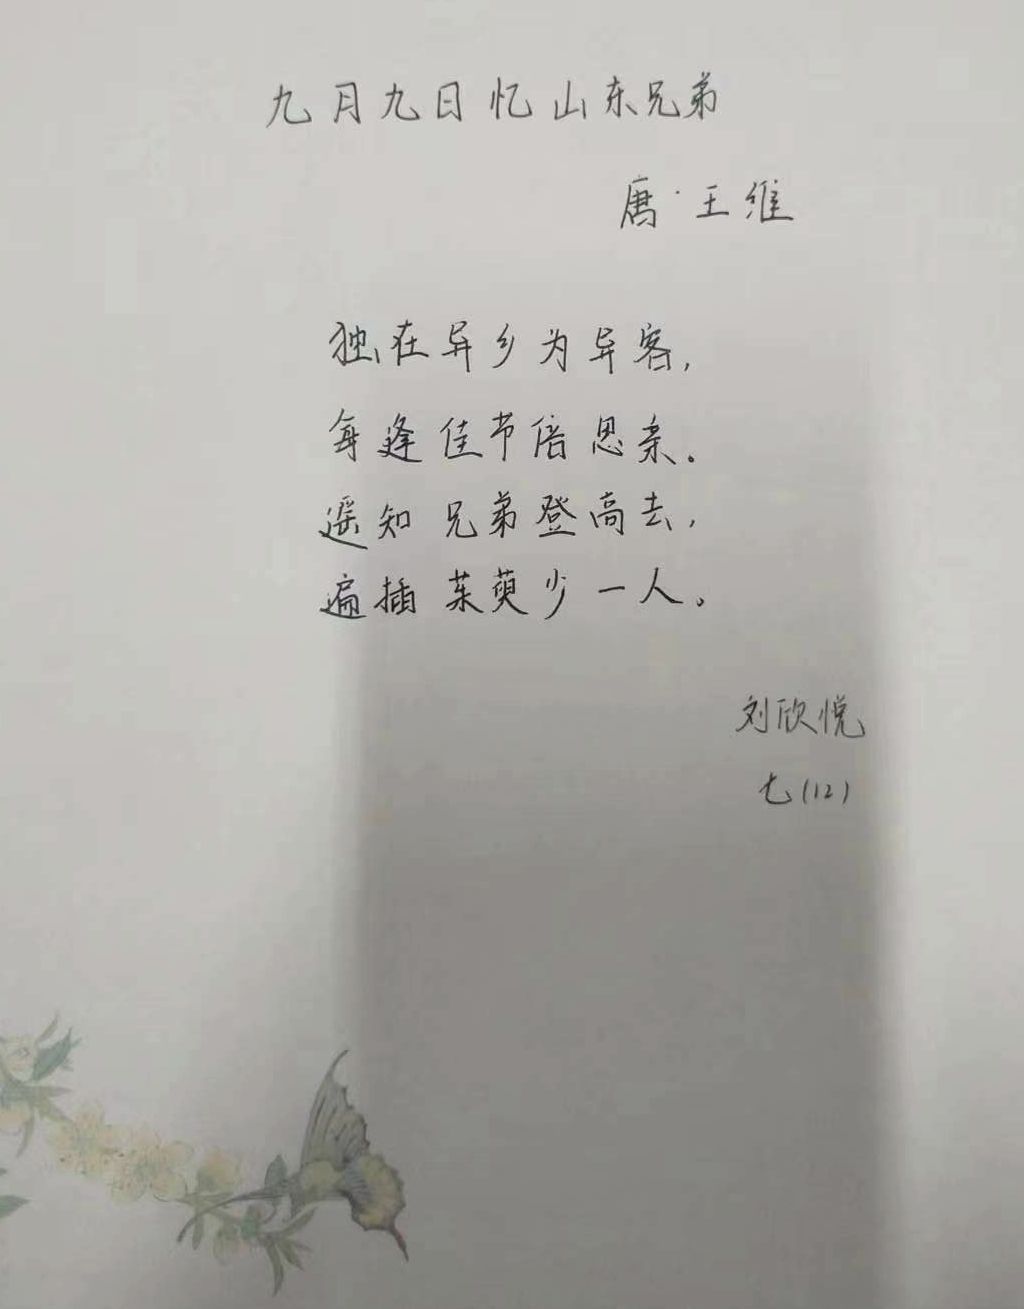 九月九日忆山东兄弟
唐·王维
独在异乡为异客,
每逢佳节倍思亲。
遥知兄弟登高去,
遍插茱萸少一人。
刘欣悦
七(12)